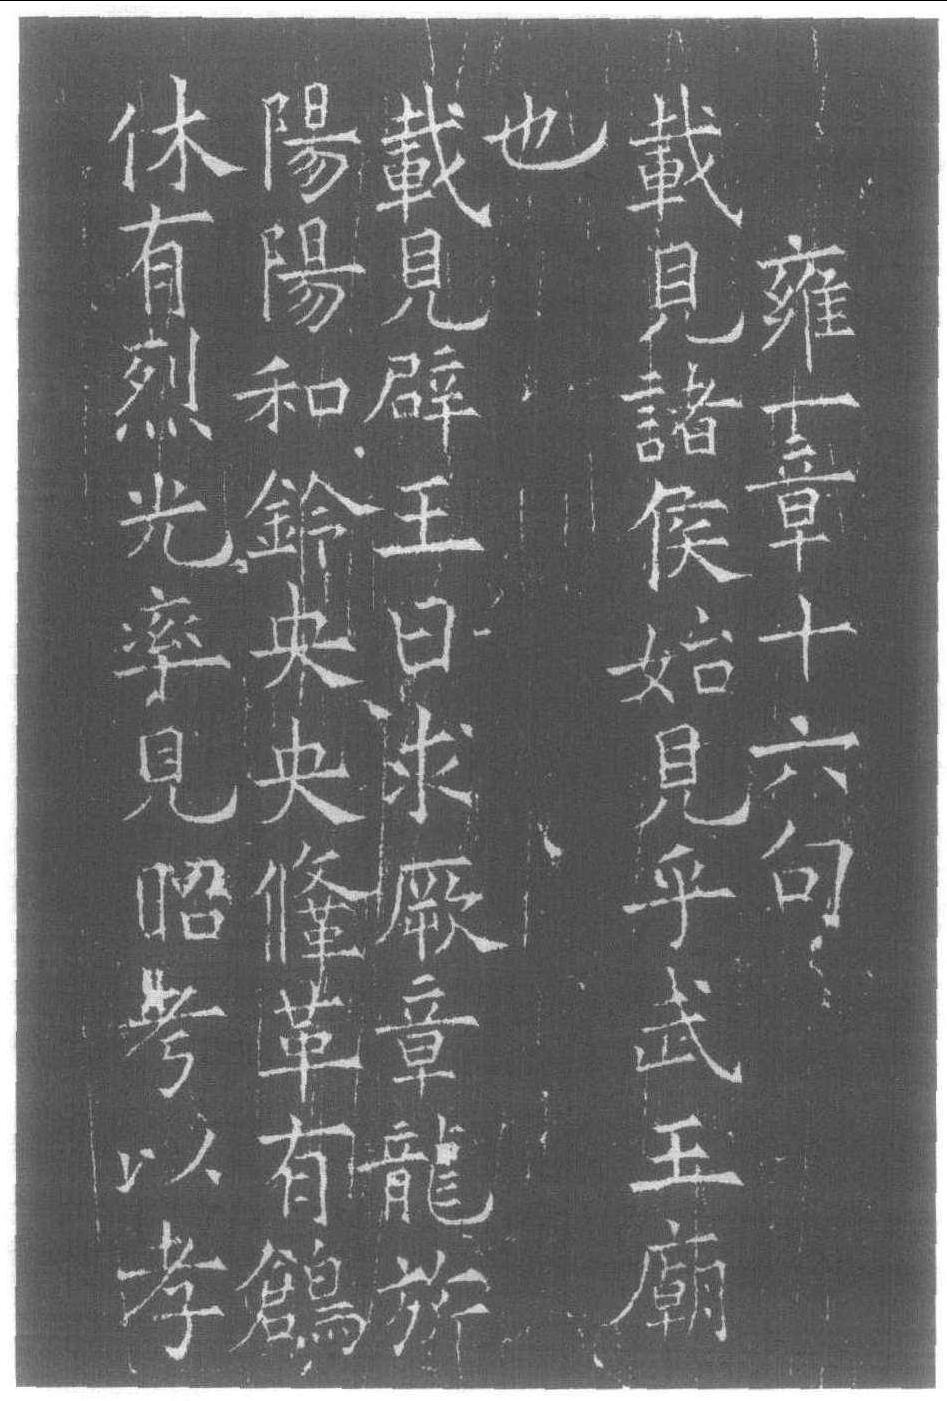 雍一章十六句
載見諸侯始見乎武王廟
也
載見辟王曰求厥章龍旂
陽陽和鈴央央鞗革有鶬
休有烈光率見昭考以孝